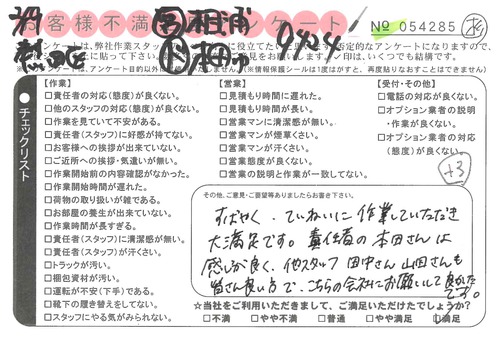 お客様不満足アンケート
No 054285
0424
ンケートは、弊社作業スタッフの
に役立てたいと
否定的なアンケートになりますので、
に貼って下さい。
いつでも結構です。
アンケート目的以外
(※情報保護シールは1度はがすと、再度貼りなおすことはできません)
チェックリスト
【作業】
□責任者の対応(態度)が良くない。
□他のスタッフの対応(態度)が良くない。
□作業を見ていて不安がある。
□責任者(スタッフ)に好感が持てない。
□お客様への挨拶が出来ていない。
□ご近所への挨拶・気遣いが無い。
□作業開始前の内容確認がなかった。
□作業開始時間が遅れた。
□荷物の取り扱いが雑である。
□お部屋の養生が出来ていない。
□作業時間が長すぎる。
□責任者(スタッフ)に清潔感が無い。
□責任者(スタッフ)が汗くさい。
□トラックが汚い。
□梱包資材が汚い。
□運転が不安(下手)である。
□靴下の履き替えをしてない。
□スタッフにやる気がみられない。
【営業】
□見積もり時間に遅れた。
□見積もり時間が長い。
□営業マンに清潔感が無い。
□営業マンが煙草くさい。
□営業マンが汗くさい。
□営業態度が良くない。
□営業の説明と作業が一致してない。
【受付・その他】
□電話の対応が良くない。
□オプション業者の説明
・作業が良くない。
□オプション業者の対応
(態度)が良くない。
+3
その他、ご意見・ご要望等ありましたらお書き下さい。
すばやく、ていねいに作業していただき
大満足です。責任者の本田さんは
感じが良く、他スタッフ 田中さん 山田さんも
皆さん良い方で、こちらの会社にお願いして良かった
です。
☆当社をご利用いただきまして、ご満足いただけたでしょうか?
□不満 □やや不満 □普通 □やや満足 □満足